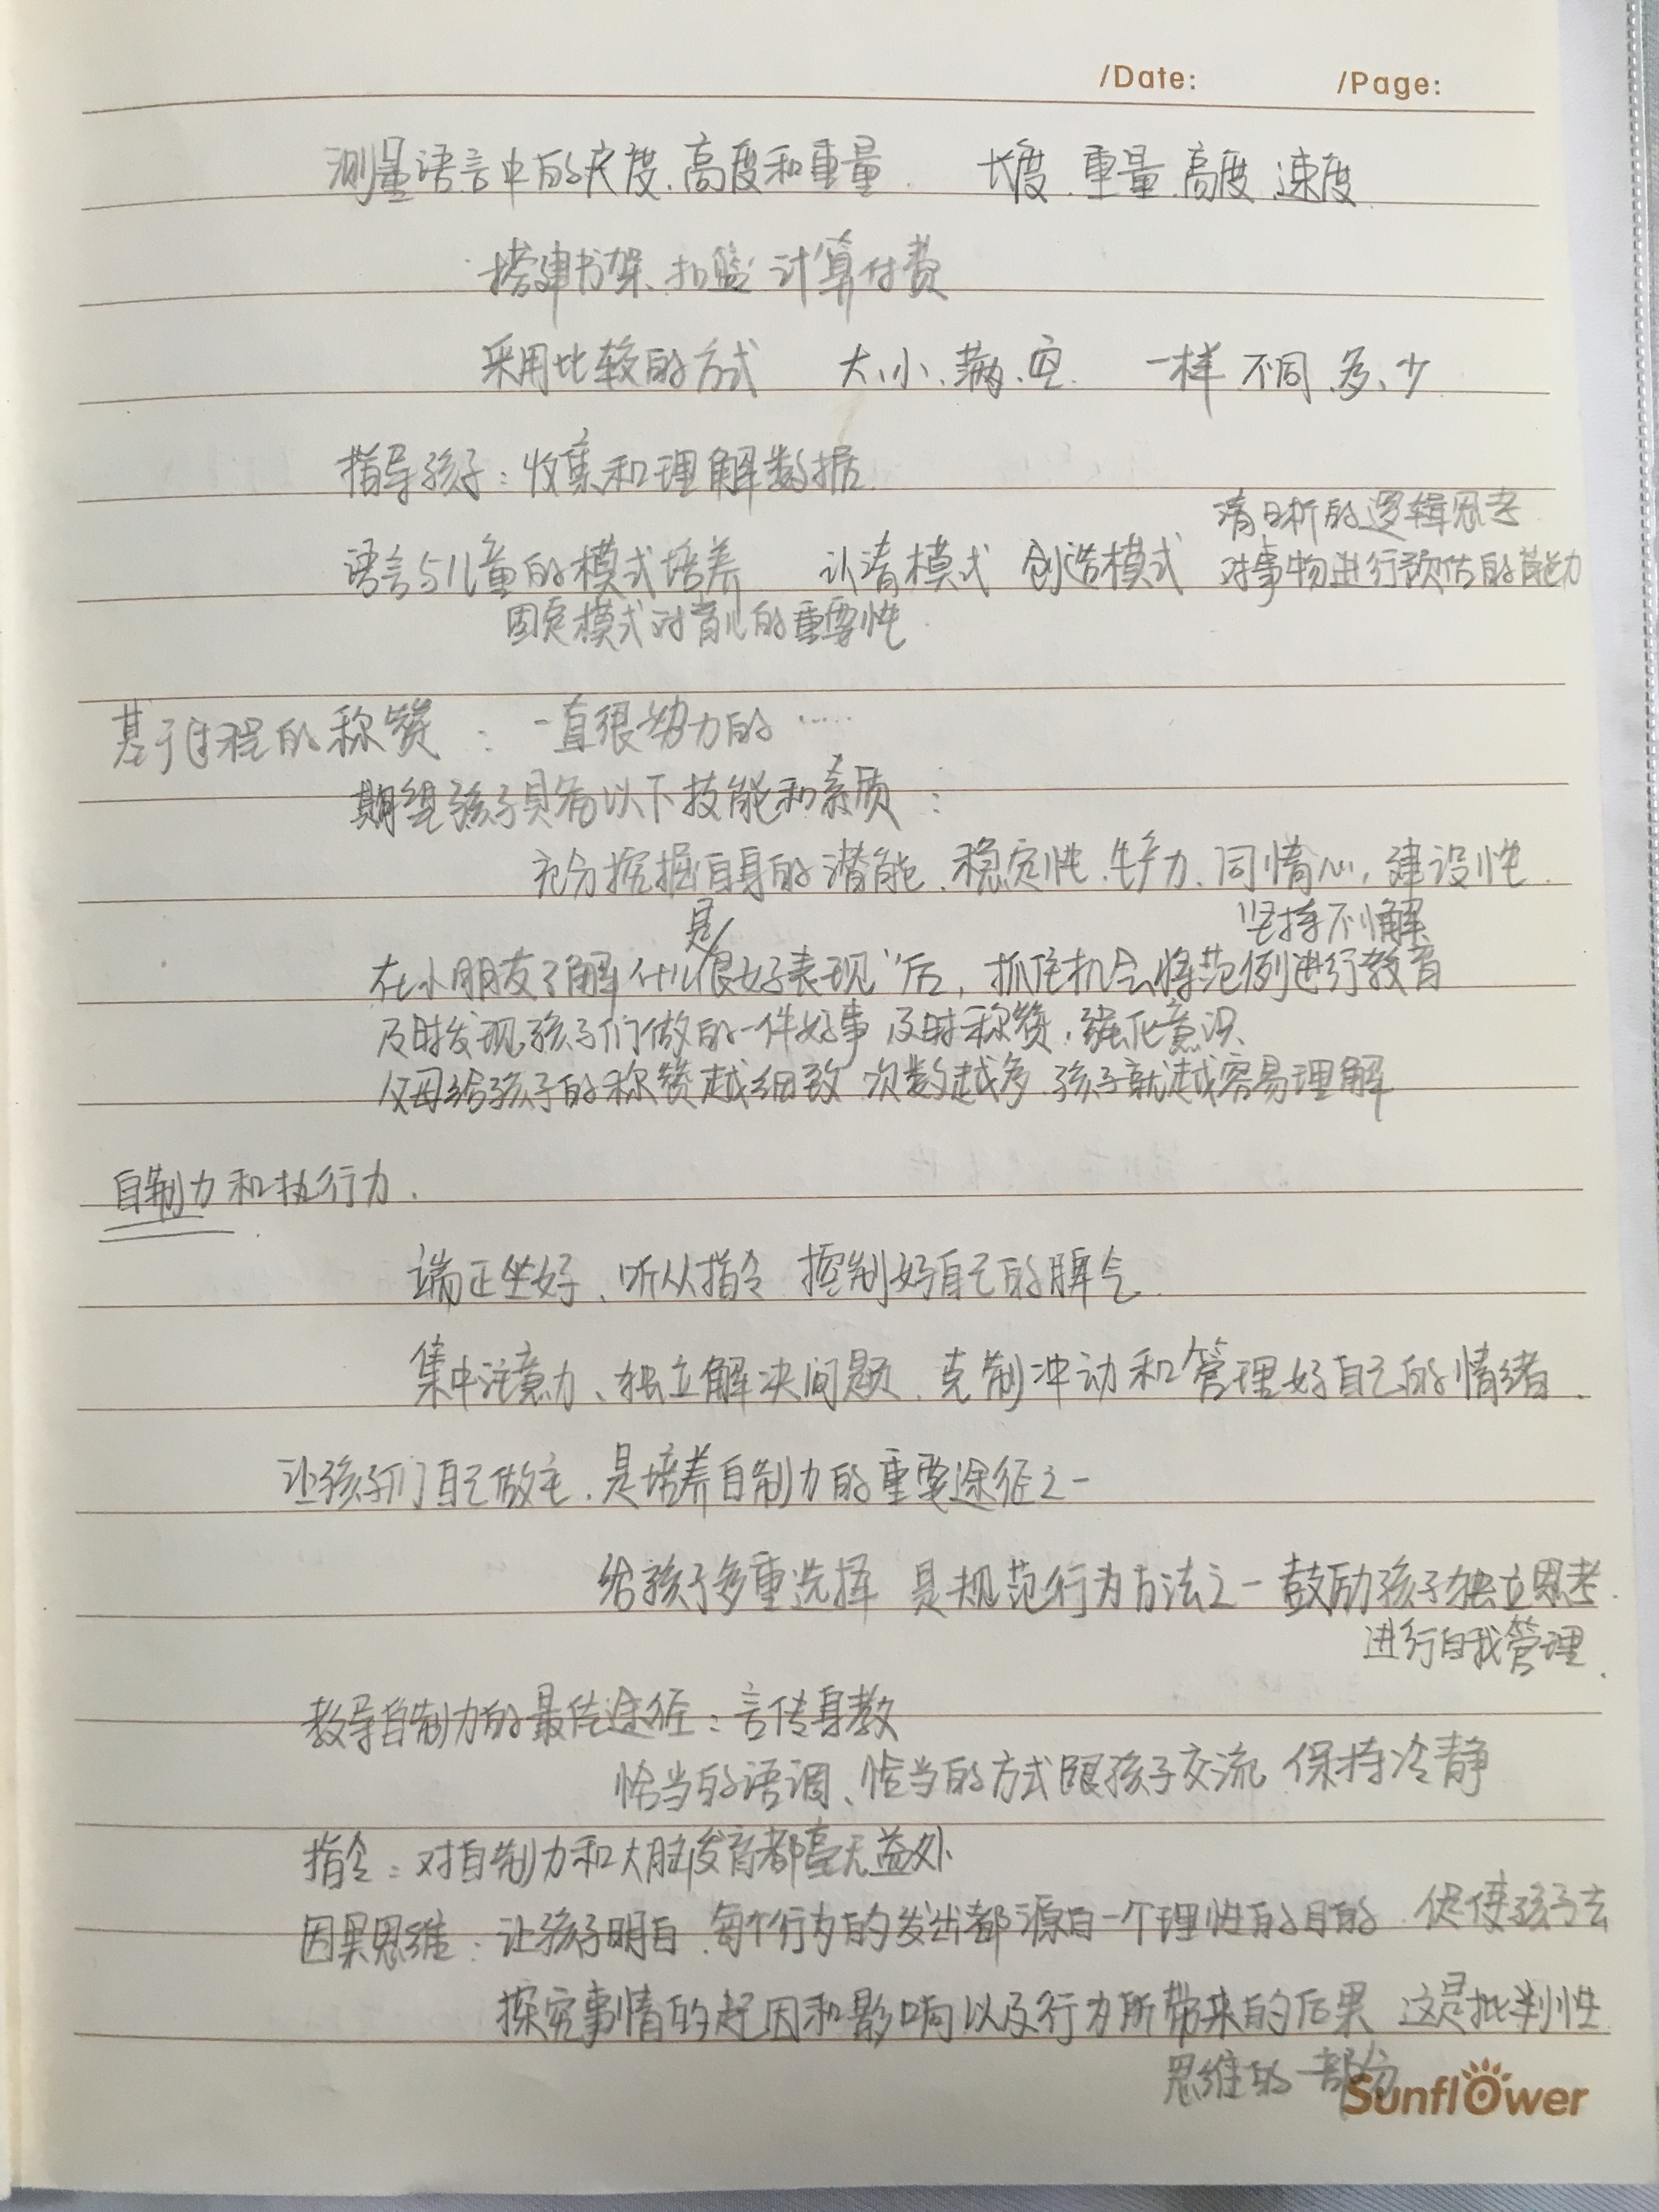 /Date: /Page:
测量语言中的尺度、高度和重量. 长度、重量、高度、速度.
搭建书架、扣篮、计算付费
采用比较的方式 大、小、满、空. 一样 不同、多、少
指导孩子：收集和理解数据.
清晰的逻辑思考
语言与儿童的模式培养 认清模式 创造模式 对事物进行预估的能力
固定模式对育儿的重要性.
基于过程的称赞：一直很努力的……
期望孩子具备以下技能和素质：
充分挖掘自身的潜能、稳定性、生产力、同情心，建设性.
是 坚持不懈
在小朋友了解"什么很好表现"后，抓住机会将范例进行教育
及时发现孩子们做的一件好事 及时称赞，强化意识
父母给孩子的称赞越细致 次数越多 孩子就越容易理解
自制力和执行力.
端正坐好、听从指令 控制好自己的脾气.
集中注意力、独立解决问题、克制冲动和管理好自己的情绪.
让孩子们自己做主，是培养自制力的重要途径之一
给孩子多重选择 是规范行为方法之一 鼓励孩子独立思考.
进行自我管理.
教导自制力的最佳途径：言传身教
恰当的语调、恰当的方式跟孩子交流 保持冷静
指令：对自制力和大脑发育都毫无益处
因果思维：让孩子明白 每个行为的发出都源自一个理性的目的. 促使孩子去
探究事情的起因和影响以及行为所带来的后果 这是批判性
思维的一部分
Sunflower